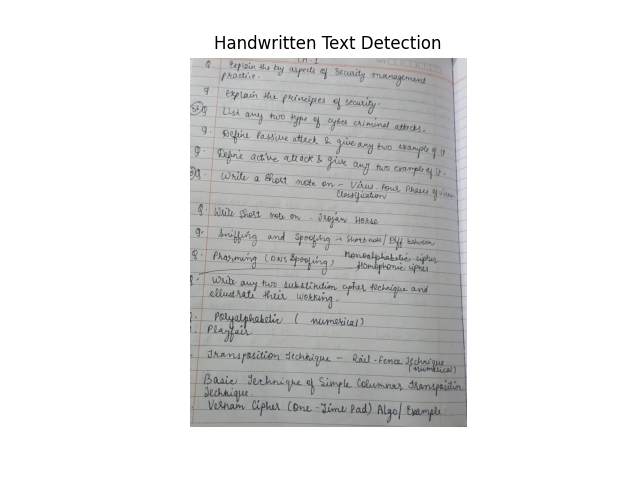 Handwritten Text Detection
Ch-1
Q. Explain the key aspects of Security management
practice.
Q. Explain the principles of security.
Q. List any two type of cyber criminal attacks.
Q. Define Passive attack & give any two example of it
Q. Define active attack & give any two example of it.
Q. Write a short note on - Virus. Four Phases of Virus
Classification
Q. Write short note on - Trojan Horse
Q. Sniffing and Spoofing → Short note/ Diff between
Q. Pharming (DNS Spoofing) Monoalphabetic cipher
Homophonic cipher
Write any two substitution cipher technique and
illustrate their working.
Polyalphabetic ( numerical)
Playfair
Transposition Technique - Rail-fence Technique
(numerical)
Basic Technique of Simple Columnar Transposition
Technique.
Vernam Cipher (One-Time Pad) Algo/ Example